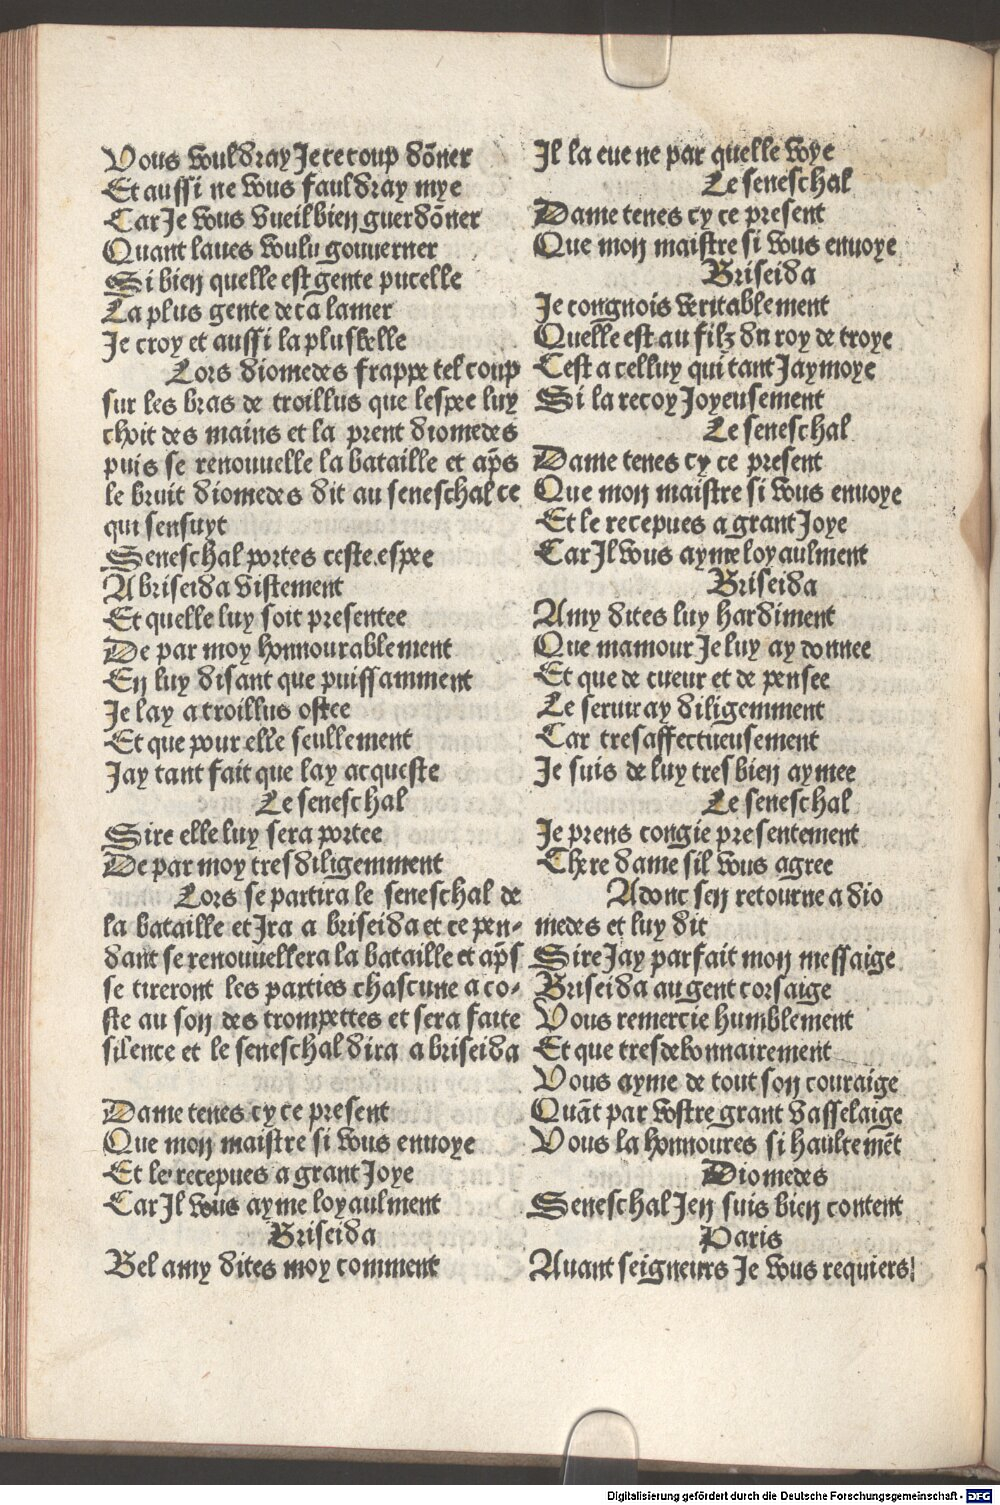 Vous vouldray Je ce coup dõner
Et aussi ne vous fauldray mye
Car Je vous vueil bien guerdõner
Quant laues voulu gouuerner
Si bien quelle est gente pucelle
La plus gente deca la mer
Je croy et aussi la plus belle
Lors diomedes frappe tel coup
sur les bras de troillus que lespee luy
choit des mains et la prent diomedes
puis se renouuelle la bataille et ap̃s
le bruit diomedes dit au seneschal ce
qui sensuyt
Seneschal portes ceste espee
A briseida vistement
Et quelle luy soit presentee
De par moy honnourablement
En luy disant que puissamment
Je lay a troillus ostee
Et que pour elle seullement
Jay tant fait que lay acqueste
Le seneschal
Sire elle luy sera portee
De par moy tres diligemment
Lors se partira le seneschal de
la bataille et Jra a briseida et ce pen-
dant se renouuellera la bataille et ap̃s
se tireront les parties chascune a co-
ste au son des trompettes et sera faite
silence et le seneschal dira a briseida
Dame tenes cy ce present
Que mon maistre si vous enuoye
Et le recepues a grant Joye
Car Jl vous ayme loyaulment
Briseida
Bel amy dites moy comment
Jl la eue ne par quelle voye
Le seneschal
Dame tenes cy ce present
Que mon maistre si vous enuoye
Briseida
Je congnois veritablement
Quelle est au filz du roy de troye
Cest a celluy qui tant Jaymoye
Si la recoy Joyeusement
Le seneschal
Dame tenes cy ce present
Que mon maistre si vous enuoye
Et le recepues a grant Joye
Car Jl vous ayme loyaulment
Briseida
Amy dites luy hardiment
Que mamour Je luy ay donnee
Et que de cueur et de pensee
Le seruiray diligemment
Car tresaffectueusement
Je suis de luy tres bien aymee
Le seneschal
Je prens congie presentement
Chere dame sil vous agree
Adonc sen retourne a dio
medes et luy dit
Sire Jay parfait mon messaige
Briseida au gent corsaige
Vous remercie humblement
Et que tresdebonnairement
Vous ayme de tout son couraige
Quãt par vostre grant vasselaige
Vous la honnoures si haultemẽt
Diomedes
Seneschal Jen suis bien content
Paris
Auant seigneurs Je vous requiers
Digitalisierung gefördert durch die Deutsche Forschungsgemeinschaft - DFG